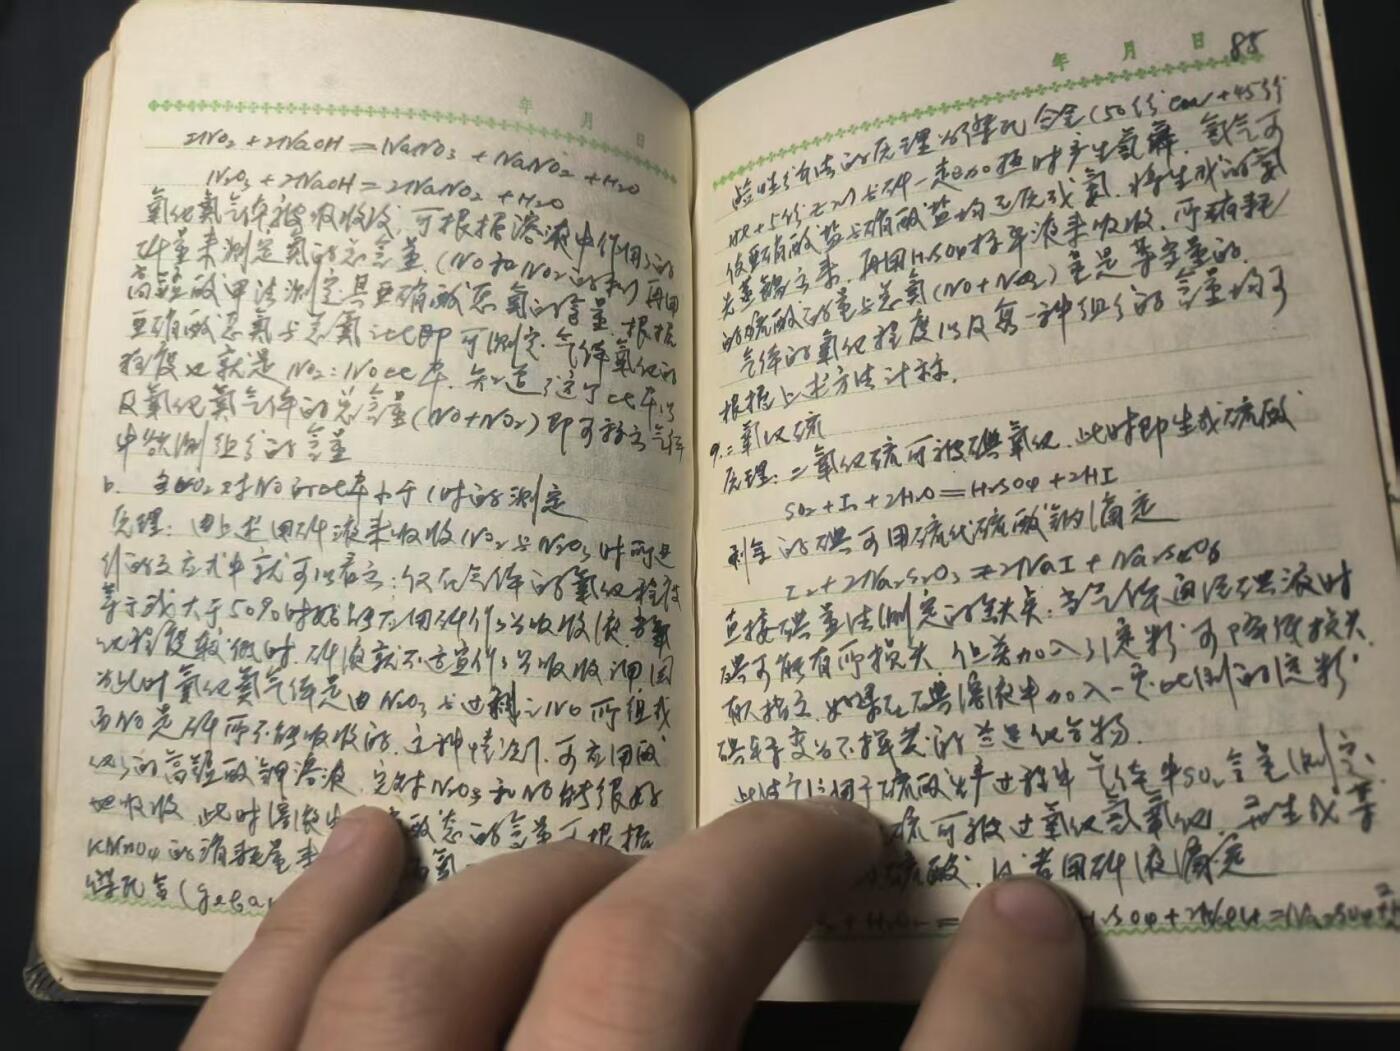 年 月 日
2NO₂+2NaOH=NaNO₃+NaNO₂+H₂O
N₂O₃+2NaOH=2NaNO₂+H₂O
氧化氮气体被吸收后,可根据溶液中作用了的
碱量来测定氮的总含量.(NO和NO₂的和)再用
高锰酸钾法测定其亚硝酸态氮的含量.根据
亚硝酸态氮与总氮之比即可测定气体氧化的
程度也就是NO₂:NO比率.知道了这个比率以
及氧化氮气体的总含量(NO+NO₂)即可算出气体
中欲测组分的含量
b. 当NO₂对NO的比率小于1时的测定
原理:由上述用碱液来吸收NO₂与N₂O₃时所进
行的反应式中就可以看出:仅在气体的氧化程度
等于或大于50%时始能应用碱作为吸收液.若氧
化程度较微时.碱液就不适宜作为吸收剂因
为此时氧化氮气体是由N₂O₃与过剩之NO所组成
而NO是碱所不能吸收的.这种情况下.可应用酸
化了的高锰酸钾溶液.它对N₂O₃和NO能很好
地吸收.此时溶液中 酸态的含量可根据
KMnO₄的消耗量来 氮
年 月 日 85
验性方法的原理为:合金(50份Cu+45份
Al+5份Zn)与碱一起加热时产生氢气.氢气可
使亚硝酸盐与硝酸盐均还原成氨.将生成的氨
先蒸馏出来.再用H₂SO₄标准液来吸收.所消耗
的硫酸的量与总氮(NO+NO₂)量是等当量的.
气体的氧化程度以及每一种组分的含量均可
根据上述方法计算.
9.二氧化硫
原理:二氧化硫可被碘氧化.此时即生成硫酸
SO₂+I₂+2H₂O=H₂SO₄+2HI
剩余的碘可用硫代硫酸钠滴定
I₂+2Na₂S₂O₃=2NaI+Na₂S₄O₆
直接碘量法测定的缺点:当气体通过碘液时
碘可能有所损失.但若加入了淀粉可降低损失
有人指出.如果在碘溶液中加入一定比例的淀粉
碘转变为不挥发的兰色化合物.
此法 用于硫酸生产过程中气体中SO₂含量测定.
硫可被过氧化氢氧化.而生成等
硫酸. 者用碱液滴定
+H₂O₂= H₂SO₄+2NaOH=Na₂SO₄+2H